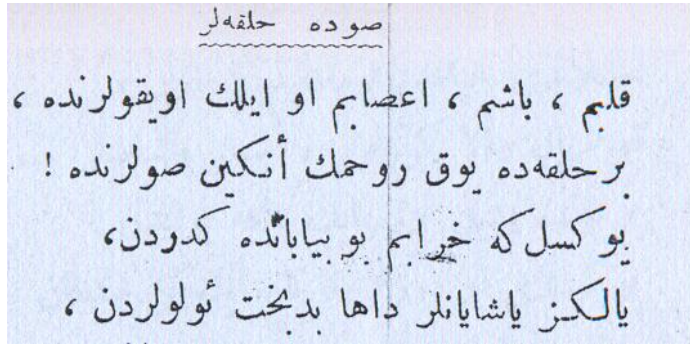 صوده حلقه‌لر
قلبم ، باشم ، اعصابم او ايلك اويقولرنده ،
بر حلقه‌ده يوق روحمك أنكين صولرنده !
يوكسل كه خرابم بو بياباننده كدردن،
يالكز ياشايانلر داها بدبخت ئولولردن ،